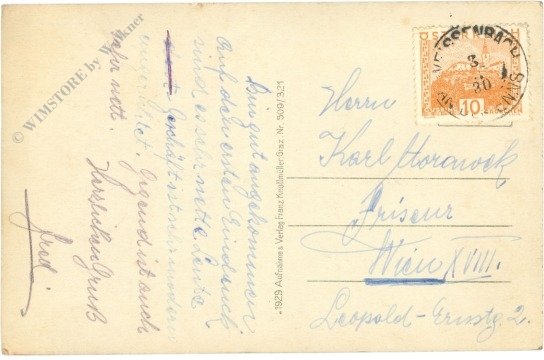 Bin gut angekommen
Auf den ersten Eindruck
sind es sehr nette Leute
Geschäft ist sehr modern
eingerichtet. Gegend ist auch
sehr nett.
Herzlichen Gruß
© WIMSTORE by Winkner
-1929 Aufnahme & Verlag Franz Knollmüller, Graz. Nr. 509/321
ÖSTERREICH
10
WEISSENBACH
Herrn
Karl Horacek
Friseur
Wien XVIII.
Leopold-Ernstg. 2.